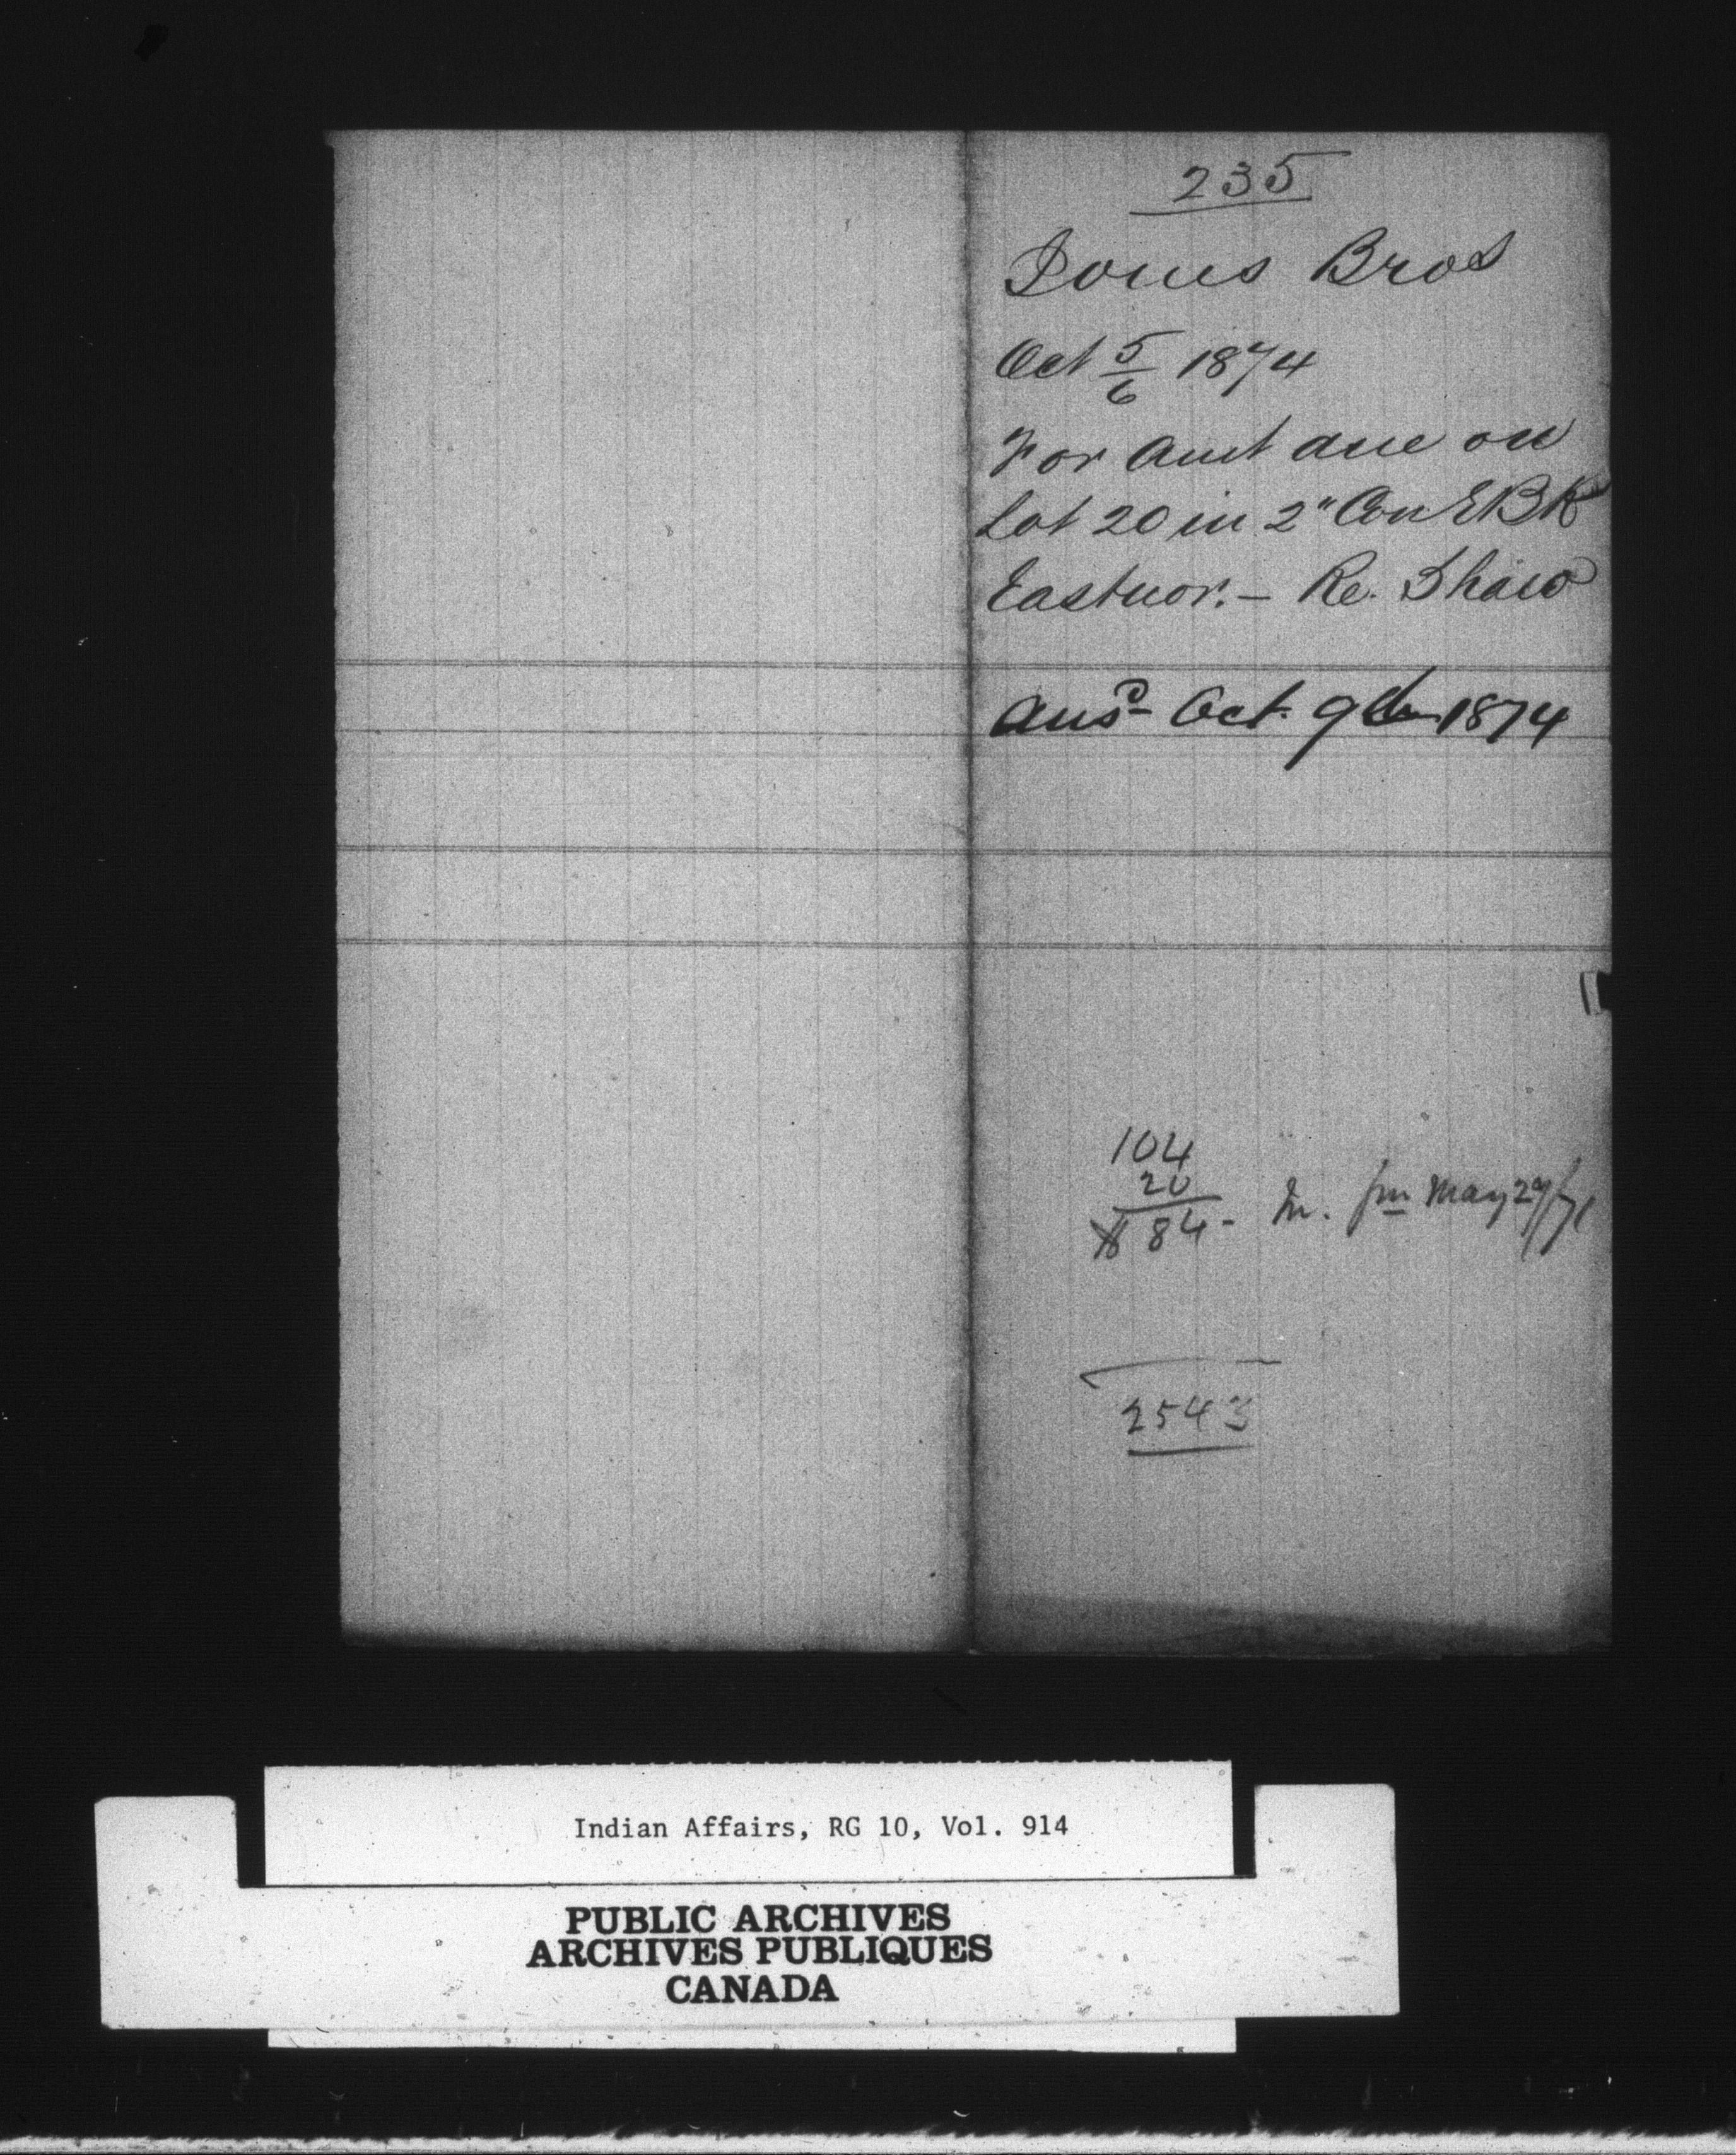 235
Jones Bros
Oct 5/6 1874
For Amt due on
Lot 20 in 2" Con EBR
Eastnor. — Re. Shaw
Ansd Oct. 9th 1874
104
20
$ 84 - In. frm May 29/71
2543
Indian Affairs, RG 10, Vol. 914
PUBLIC ARCHIVES
ARCHIVES PUBLIQUES
CANADA